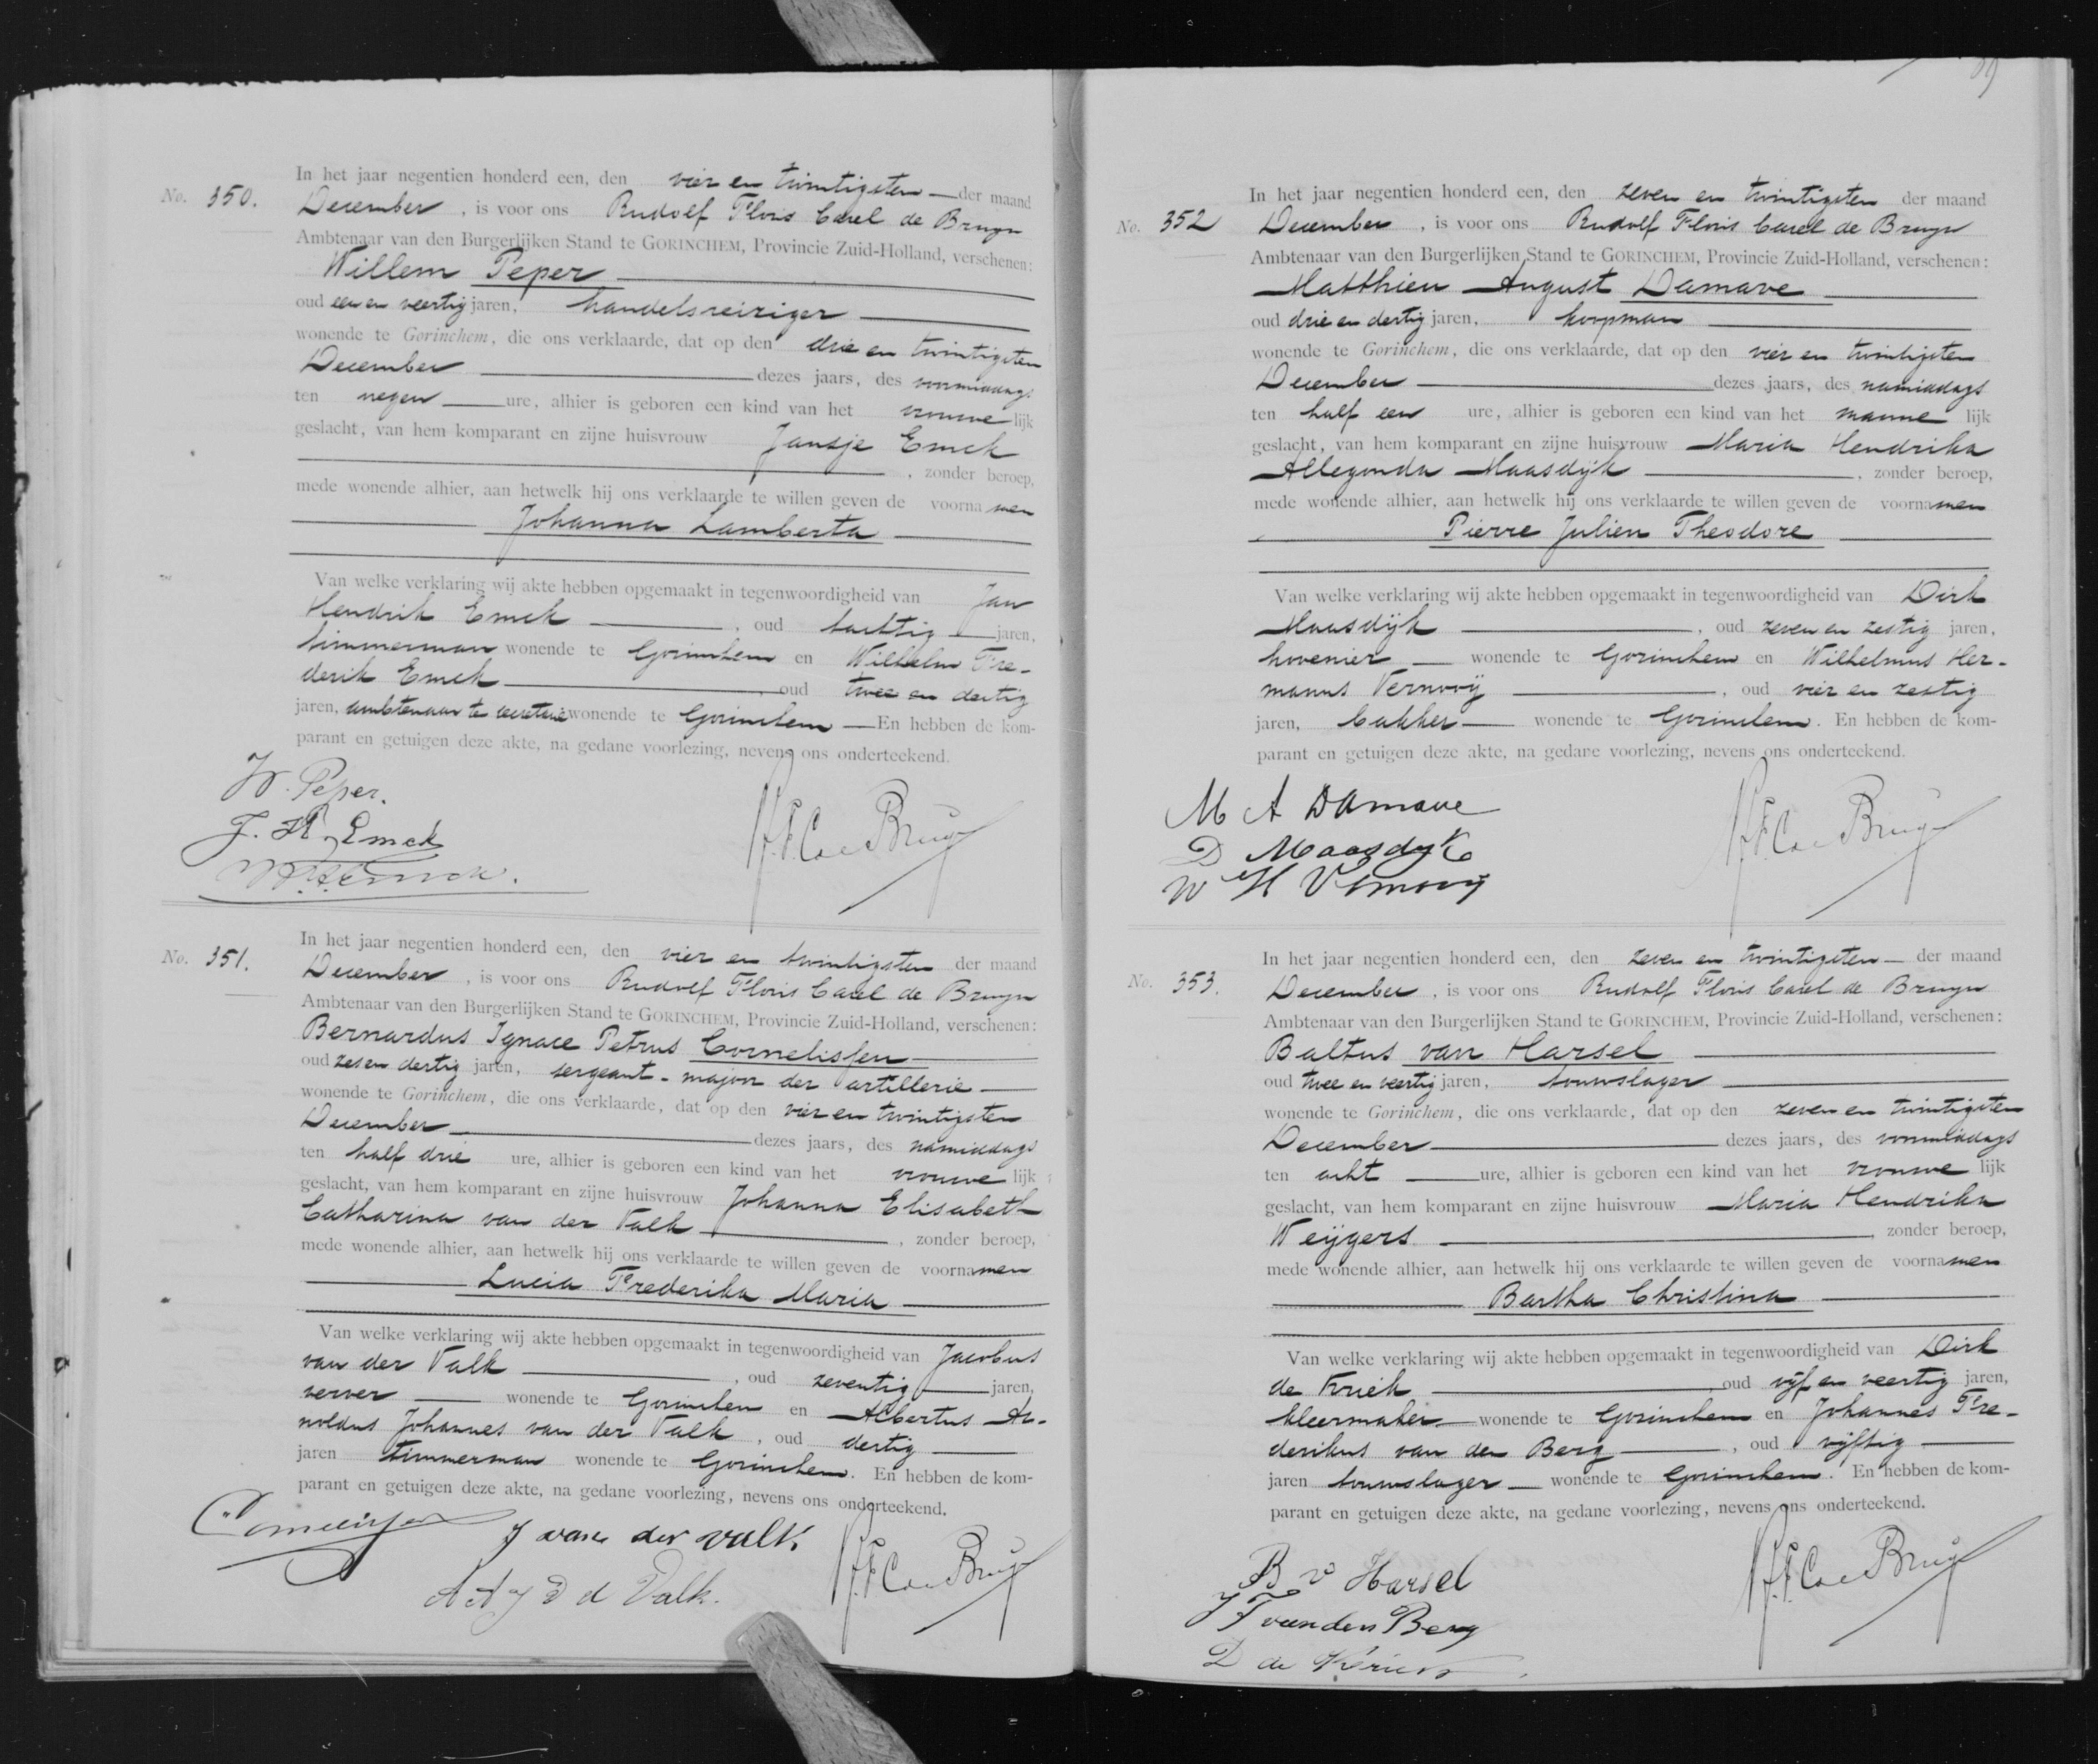 No. 350.
In het jaar negentien honderd een, den vier en twintigsten der maand
December, is voor ons Rudolf Floris Carel de Bruyn
Ambtenaar van den Burgerlijken Stand te GORINCHEM, Provincie Zuid-Holland, verschenen:
Willem Peper
oud een en veertig jaren, handelsreiziger
wonende te Gorinchem, die ons verklaarde, dat op den drie en twintigsten
December dezes jaars, des voormiddags
ten negen ure, alhier is geboren een kind van het vrouwelijk
geslacht, van hem komparant en zijne huisvrouw Jansje Emck
, zonder beroep,
mede wonende alhier, aan hetwelk hij ons verklaarde te willen geven de voornamen
Johanna Lamberta
Van welke verklaring wij akte hebben opgemaakt in tegenwoordigheid van Jan
Hendrik Emck, oud tachtig jaren,
timmerman wonende te Gorinchem en Wilhelm Fre-
derik Emck, oud twee en dertig
jaren, ambtenaar ter secretarie wonende te Gorinchem En hebben de kom-
parant en getuigen deze akte, na gedane voorlezing, nevens ons onderteekend.
W. Peper.
J. H. Emck
W. F. Emck.
R.F.C. de Bruyn
No. 351.
In het jaar negentien honderd een, den vier en twintigsten der maand
December, is voor ons Rudolf Floris Carel de Bruyn
Ambtenaar van den Burgerlijken Stand te GORINCHEM, Provincie Zuid-Holland, verschenen:
Bernardus Ignace Petrus Cornelissen
oud zes en dertig jaren, sergeant-majoor der artillerie
wonende te Gorinchem, die ons verklaarde, dat op den vier en twintigsten
December dezes jaars, des namiddags
ten half drie ure, alhier is geboren een kind van het vrouwelijk
geslacht, van hem komparant en zijne huisvrouw Johanna Elisabeth
Catharina van der Valk, zonder beroep,
mede wonende alhier, aan hetwelk hij ons verklaarde te willen geven de voornamen
Lucia Frederika Maria
Van welke verklaring wij akte hebben opgemaakt in tegenwoordigheid van Jacobus
van der Valk, oud zeventig jaren,
verver wonende te Gorinchem en Albertus Ar-
noldus Johannes van der Valk, oud dertig
jaren timmerman wonende te Gorinchem. En hebben de kom-
parant en getuigen deze akte, na gedane voorlezing, nevens ons onderteekend.
Cornelissen
J van der valk
A A J v d Valk.
R.F.C. de Bruyn
No. 352
In het jaar negentien honderd een, den zeven en twintigsten der maand
December, is voor ons Rudolf Floris Carel de Bruyn
Ambtenaar van den Burgerlijken Stand te GORINCHEM, Provincie Zuid-Holland, verschenen:
Matthieu August Damave
oud drie en dertig jaren, koopman
wonende te Gorinchem, die ons verklaarde, dat op den vier en twintigsten
December dezes jaars, des namiddags
ten half een ure, alhier is geboren een kind van het mannelijk
geslacht, van hem komparant en zijne huisvrouw Maria Hendrika
Allegonda Maasdijk, zonder beroep,
mede wonende alhier, aan hetwelk hij ons verklaarde te willen geven de voornamen
Pierre Julien Theodore
Van welke verklaring wij akte hebben opgemaakt in tegenwoordigheid van Dirk
Maasdijk, oud zeven en zestig jaren,
hovenier wonende te Gorinchem en Wilhelmus Her-
manus Vernooij, oud vier en zestig
jaren, bakker wonende te Gorinchem. En hebben de kom-
parant en getuigen deze akte, na gedane voorlezing, nevens ons onderteekend.
M A Damave
D Maasdyk
W H Vernooij
R.F.C. de Bruyn
No. 353.
In het jaar negentien honderd een, den zeven en twintigsten der maand
December, is voor ons Rudolf Floris Carel de Bruyn
Ambtenaar van den Burgerlijken Stand te GORINCHEM, Provincie Zuid-Holland, verschenen:
Baltus van Harsel
oud twee en veertig jaren, touwslager
wonende te Gorinchem, die ons verklaarde, dat op den zeven en twintigsten
December dezes jaars, des voormiddags
ten acht ure, alhier is geboren een kind van het vrouwelijk
geslacht, van hem komparant en zijne huisvrouw Maria Hendrika
Weijgers, zonder beroep,
mede wonende alhier, aan hetwelk hij ons verklaarde te willen geven de voornamen
Bartha Christina
Van welke verklaring wij akte hebben opgemaakt in tegenwoordigheid van Dirk
de Kriek, oud vijf en veertig jaren,
kleermaker wonende te Gorinchem en Johannes Fre-
derikus van den Berg, oud vijftig
jaren touwslager wonende te Gorinchem. En hebben de kom-
parant en getuigen deze akte, na gedane voorlezing, nevens ons onderteekend.
B v Harsel
J F van den Berg
D de Kriek
R.F.C. de Bruyn